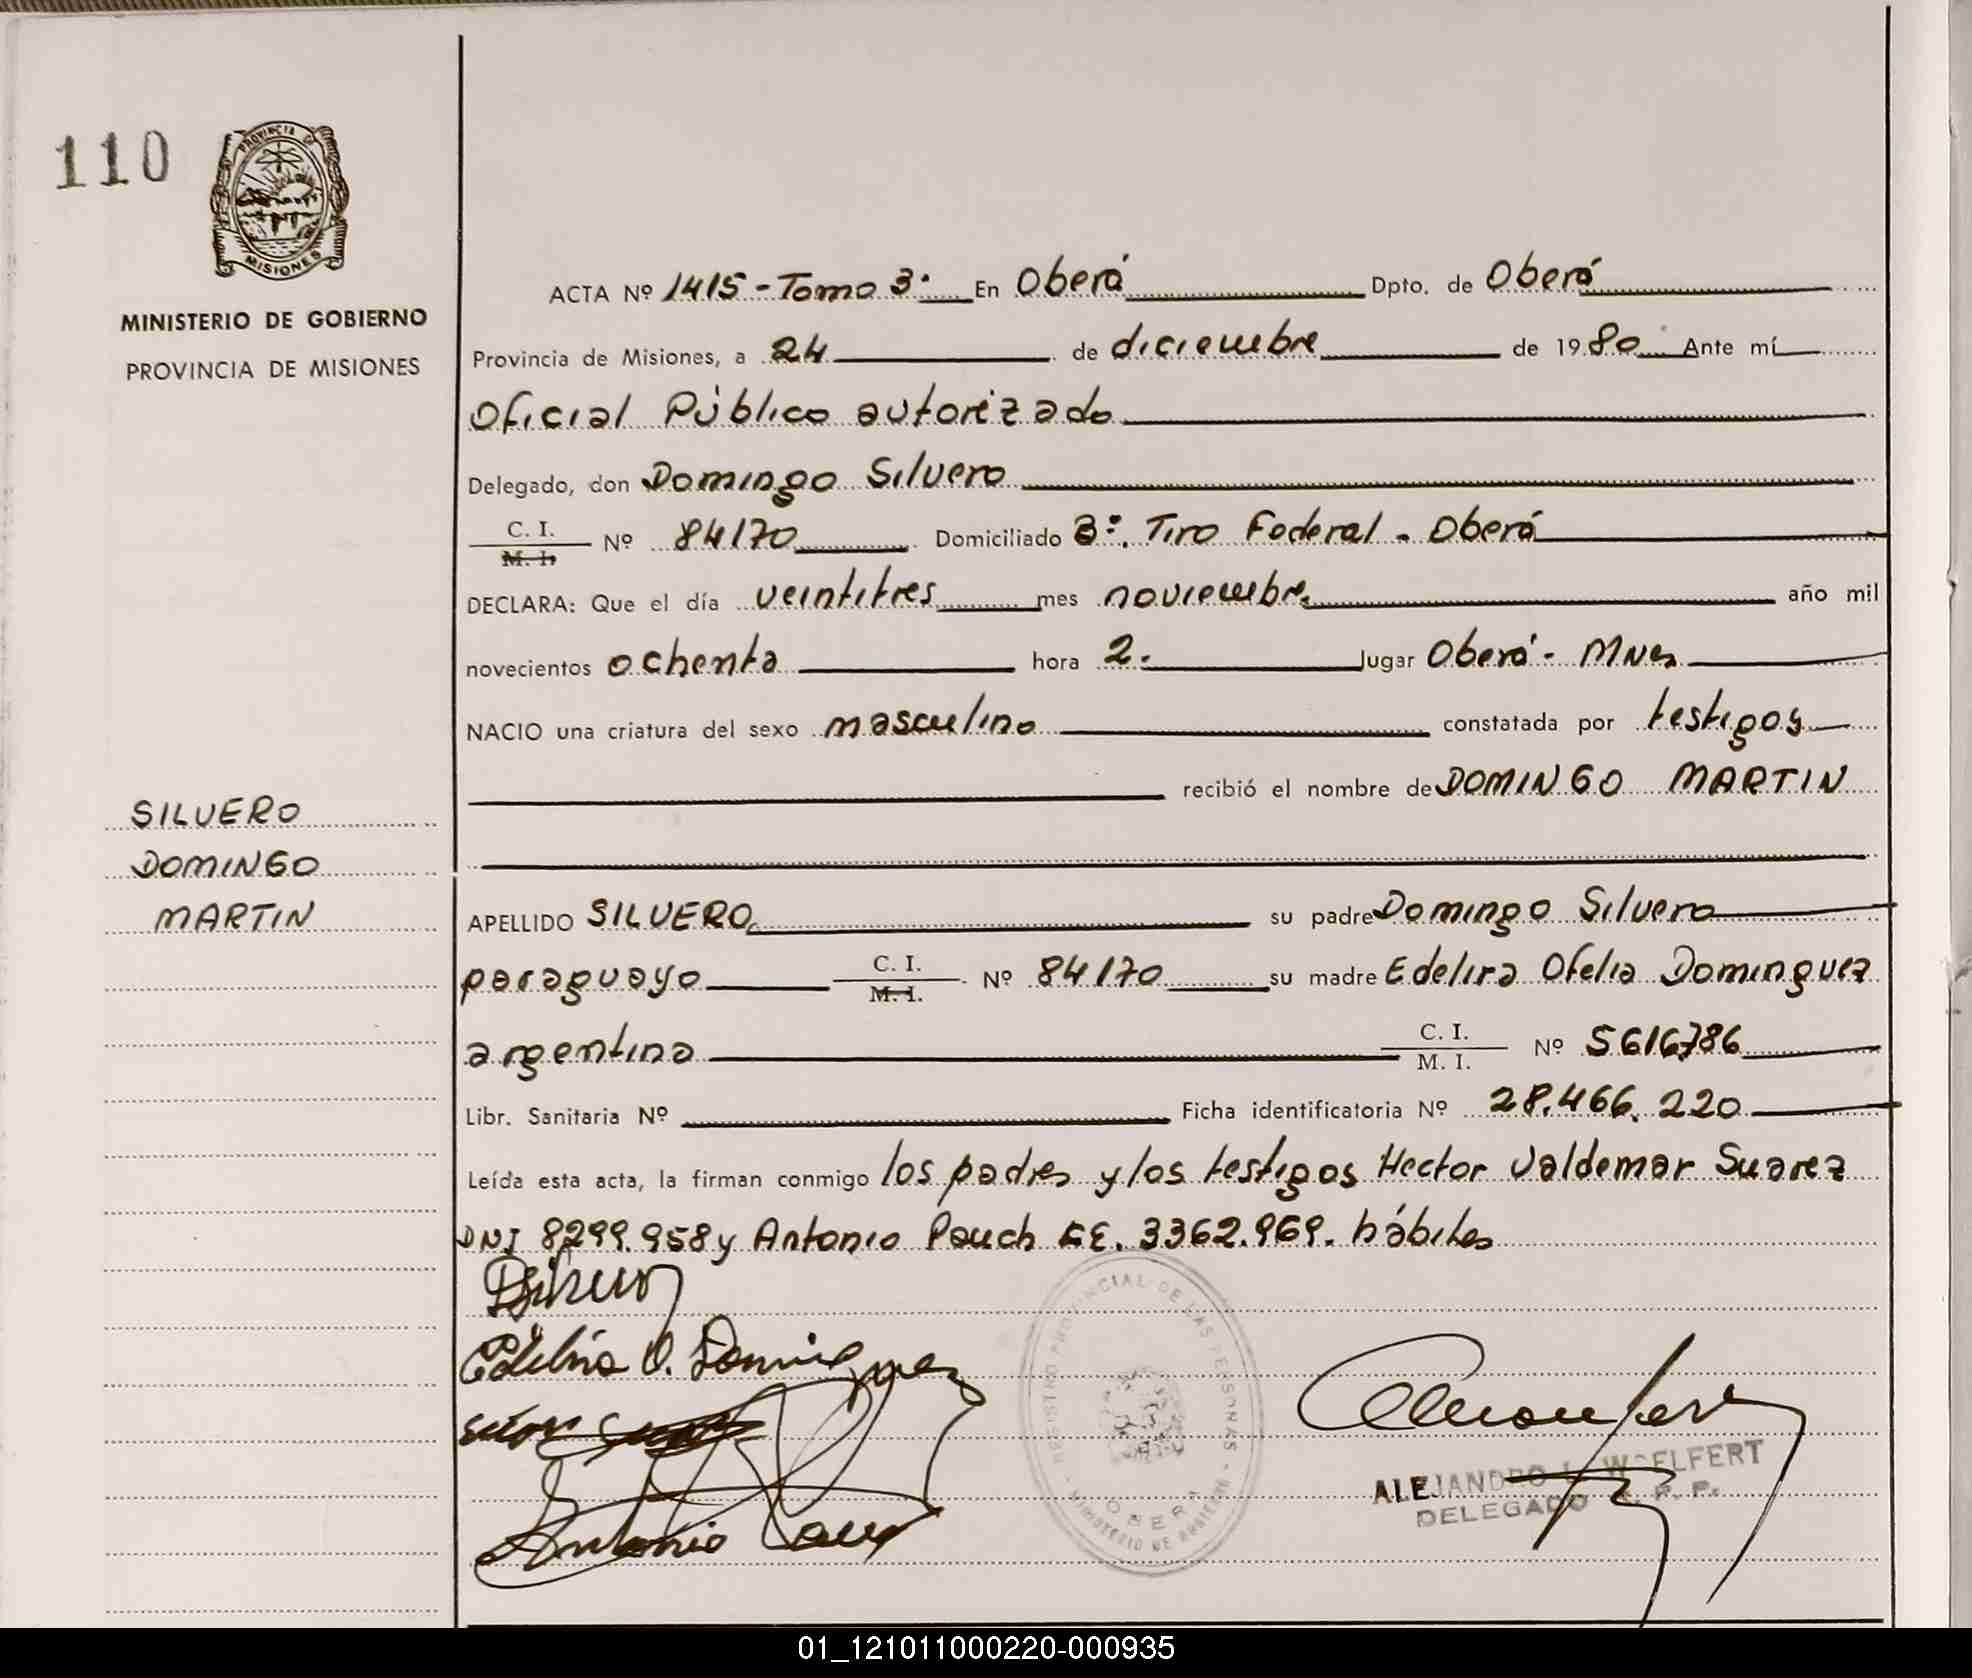 110
PROVINCIA DE
MISIONES
MINISTERIO DE GOBIERNO
PROVINCIA DE MISIONES
ACTA Nº 1415 - Tomo 3º En Oberá Dpto. de Oberá
Provincia de Misiones, a 24 de diciembre de 1980 Ante mí
Oficial Público autorizado
Delegado, don Domingo Silvero
C. I.
M. I. Nº 84170 Domiciliado Bº. Tiro Federal - Oberá
DECLARA: Que el día veintitres mes noviembre año mil
novecientos ochenta hora 2. lugar Oberá - Mnes
NACIO una criatura del sexo masculino constatada por testigos
recibió el nombre de DOMINGO MARTIN
SILVERO
DOMINGO
MARTIN
APELLIDO SILVERO su padre Domingo Silvero
paraguayo C. I. M. I. Nº 84170 su madre Edelira Ofelia Dominguez
argentina C. I. M. I. Nº 5616786
Libr. Sanitaria Nº Ficha identificatoria Nº 28.466.220
Leída esta acta, la firman conmigo los padres y los testigos Hector Valdemar Suarez
DNI 8299.958 y Antonio Pauch CE. 3362.969. hábiles
DSilvero
Edelira O. Dominguez
Antonio Pauch
REGISTRO PROVINCIAL DE LAS PERSONAS
OBERA
ALEJANDRO L. WOELFERT
DELEGADO R. P. P.
01_121011000220-000935